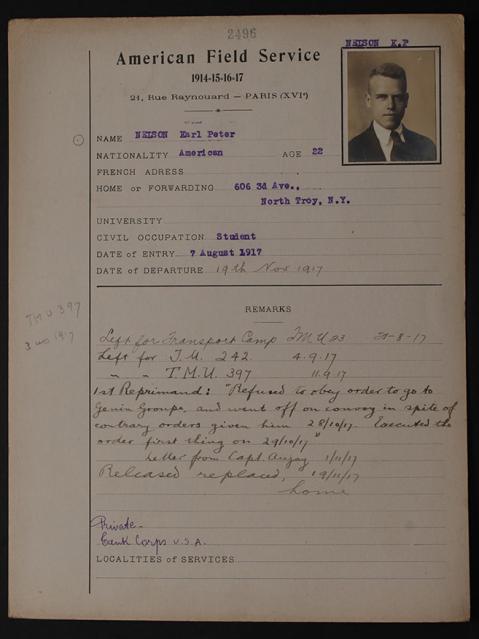 2496
NELSON E.P
American Field Service
1914-15-16-17
21, Rue Raynouard — PARIS (XVIᵉ)
NAME NELSON Earl Peter
NATIONALITY American AGE 22
FRENCH ADRESS
HOME or FORWARDING 606 3d Ave.,
North Troy, N.Y.
UNIVERSITY
CIVIL OCCUPATION Student
DATE of ENTRY 7 August 1917
DATE of DEPARTURE 19th Nov 1917
TMU 397
3 1917
REMARKS
Left for Transport Camp T.M.U 133 -8-17
Left for T.U. 242 4.9.17
" " T.M.U. 397 11.9.17
1st Reprimand: "Refused to obey order to go to
Genin Groupe, and went off on convoy in spite of
contrary orders given him 28/10/17. Executed the
order first thing on 29/10/17"
Letter from Capt. 1/11/17
Released replaced, 19/11/17
home
Private-
Tank Corps U.S.A.
LOCALITIES of SERVICES